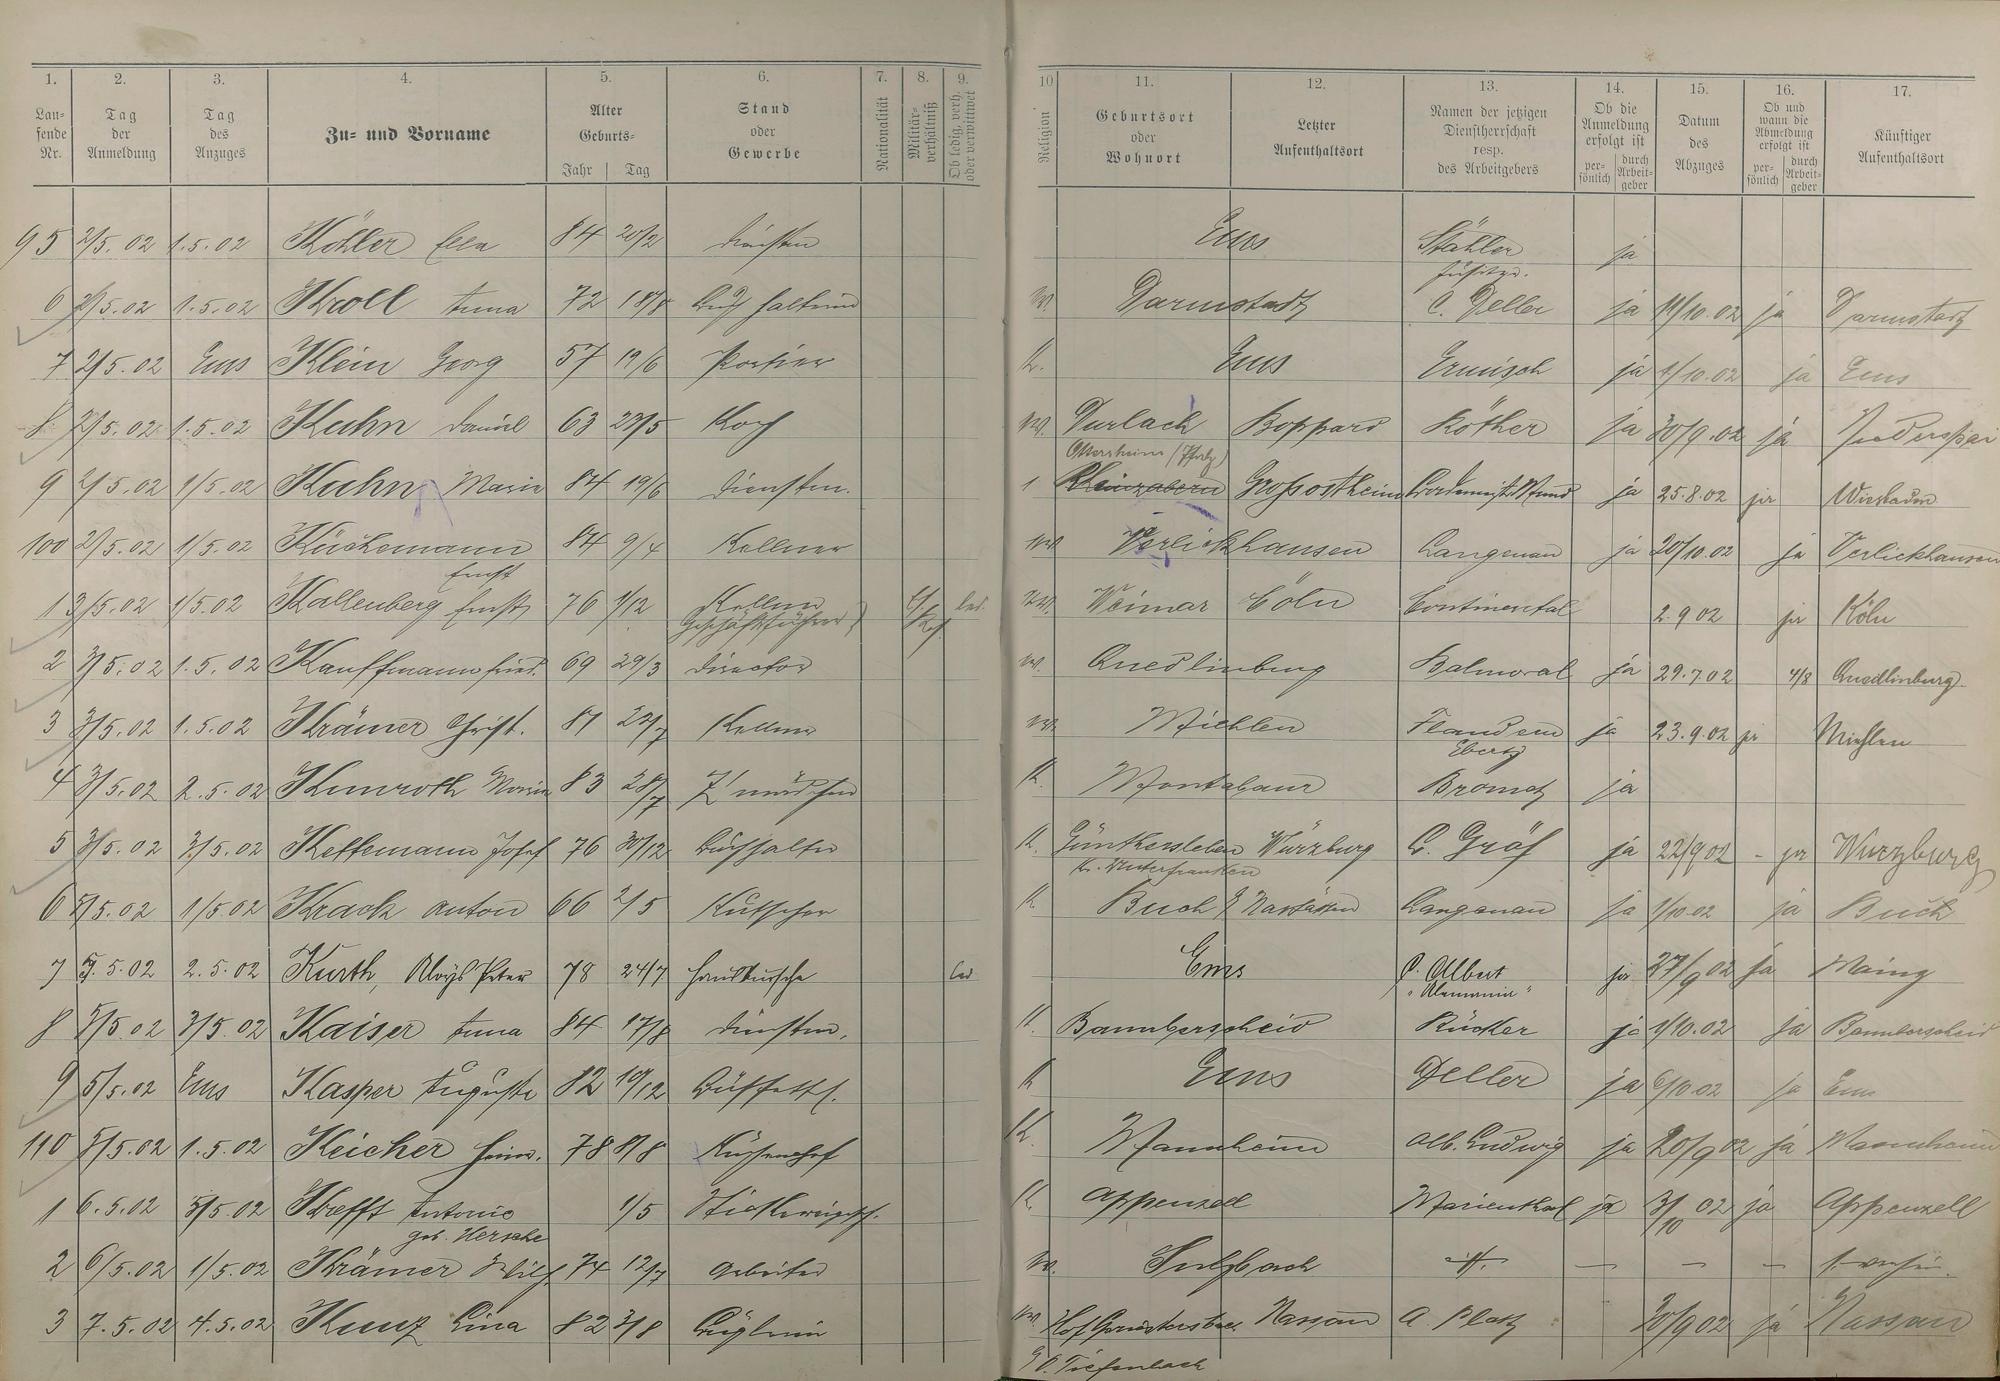 1. 2. 3. 4. 5. 6. 7. 8. 9. 10 11. 12. 13. 14. 15. 16. 17.
Laufende Nr.
Tag der Anmeldung
Tag des Anzuges
Zu- und Vorname
Alter
Geburts-
Jahr Tag
Stand oder Gewerbe
Nationalität
Militär-verhältniß
Ob ledig, verh. oder verwittwet
Religion
Geburtsort oder Wohnort
Letzter Aufenthaltsort
Namen der jetzigen Dienstherrschaft resp. des Arbeitgebers
Ob die Anmeldung erfolgt ist
per-sönlich durch Arbeit-geber
Datum des Abzuges
Ob und wann die Abmeldung erfolgt ist
per-sönlich durch Arbeit-geber
Künftiger Aufenthaltsort
95 2/5.02 1.5.02 Köhler Ella 84 20/2 Dienstm Ems Stähler ja
6 2/5.02 1.5.02 Kroll Anna 72 18/8 Buchhalterin W. Darmstadt C. Deller ja 11/10.02 ja Darmstadt
7 2/5.02 Ems Klein Georg 57 19/6 Portier K. Ems Ermisch ja 1/10.02 ja Ems
8 2/5.02 1.5.02 Kuhn Daniel 63 23/5 Koch W. Durlach Boppard Röther ja 30/9.02 ja
Ottersheim (Pfalz)
9 2/5.02 1/5.02 Kuhn Marie 84 19/6 Dienstm. Rheinzabern Grosostheim ja 25.8.02 ja Wiesbaden
100 2/5.02 1/5.02 Küchemann 84 9/4 Kellner W Verlickhausen Langenau ja 20/10.02 ja Verlickhausen
Ernst
1 3/5.02 1/5.02 Kallenberg Ernst 76 1/12 Kellner led. W. Weimar Cöln Continental 2.9 02 ja Köln
Geschäftsführer
2 3/5.02 1.5.02 Kauffmann Fried. 69 29/3 Director W. Quedlinburg Balmoral ja 29.7.02 4/8 Quedlinburg
3 3/5.02 1.5.02 Krämer Christ. 81 22/7 Kellner W. Miehlen Flandern ja 23.9.02 ja Miehlen
Ebertz
4 3/5.02 2.5.02 Kunroth Maria 83 28/7 Z'mädchen K. Montabaur Brometz ja
5 3/5.02 3/5.02 Keffemann Josef 76 30/12 Buchhalter K. Güntersleben Würzburg C. Gräf ja 22/9 02 - ja Würzburg
K. Unterfranken
6 5/5.02 1/5.02 Krack Anton 66 2/5 Kutscher K. Buch Nastätten Langenau ja 1/10.02 ja Buch
7 5.5.02 2.5.02 Kurth, Aloys Peter 78 24/7 Hausbursche led Ems C. Albert ja 27/9 02 ja Mainz
"Alemannia"
8 5/5.02 3/5.02 Kaiser Anna 84 17/8 Dienstm. K. Bannberscheid Rücker ja 1/10.02 ja Bannberscheid
9 5/5.02 Ems Kasper Auguste 82 10/12 Büffettf. K Ems Deller ja 6/10.02 ja Ems
110 5/5.02 1.5.02 Keicher Heinr. 78 8/8 Küchenchef K. Mannheim Alb. Ludwig ja 20/9 02 ja Mannheim
1 6.5.02 5/5.02 Krefft Antonie 1/5 K. Appenzell Marienthal ja 3/10 02 ja Appenzell
geb. Hersche
2 6/5.02 1/5.02 Krämer Wilh. 74 12/7 Arbeiter W. Sulzbach — — —
3 7.5.02 4.5.02 Kunz Lina 82 3/8 Büglerin W. Nassau A. Platz 30/9 02 ja Nassau
Tiefenbach